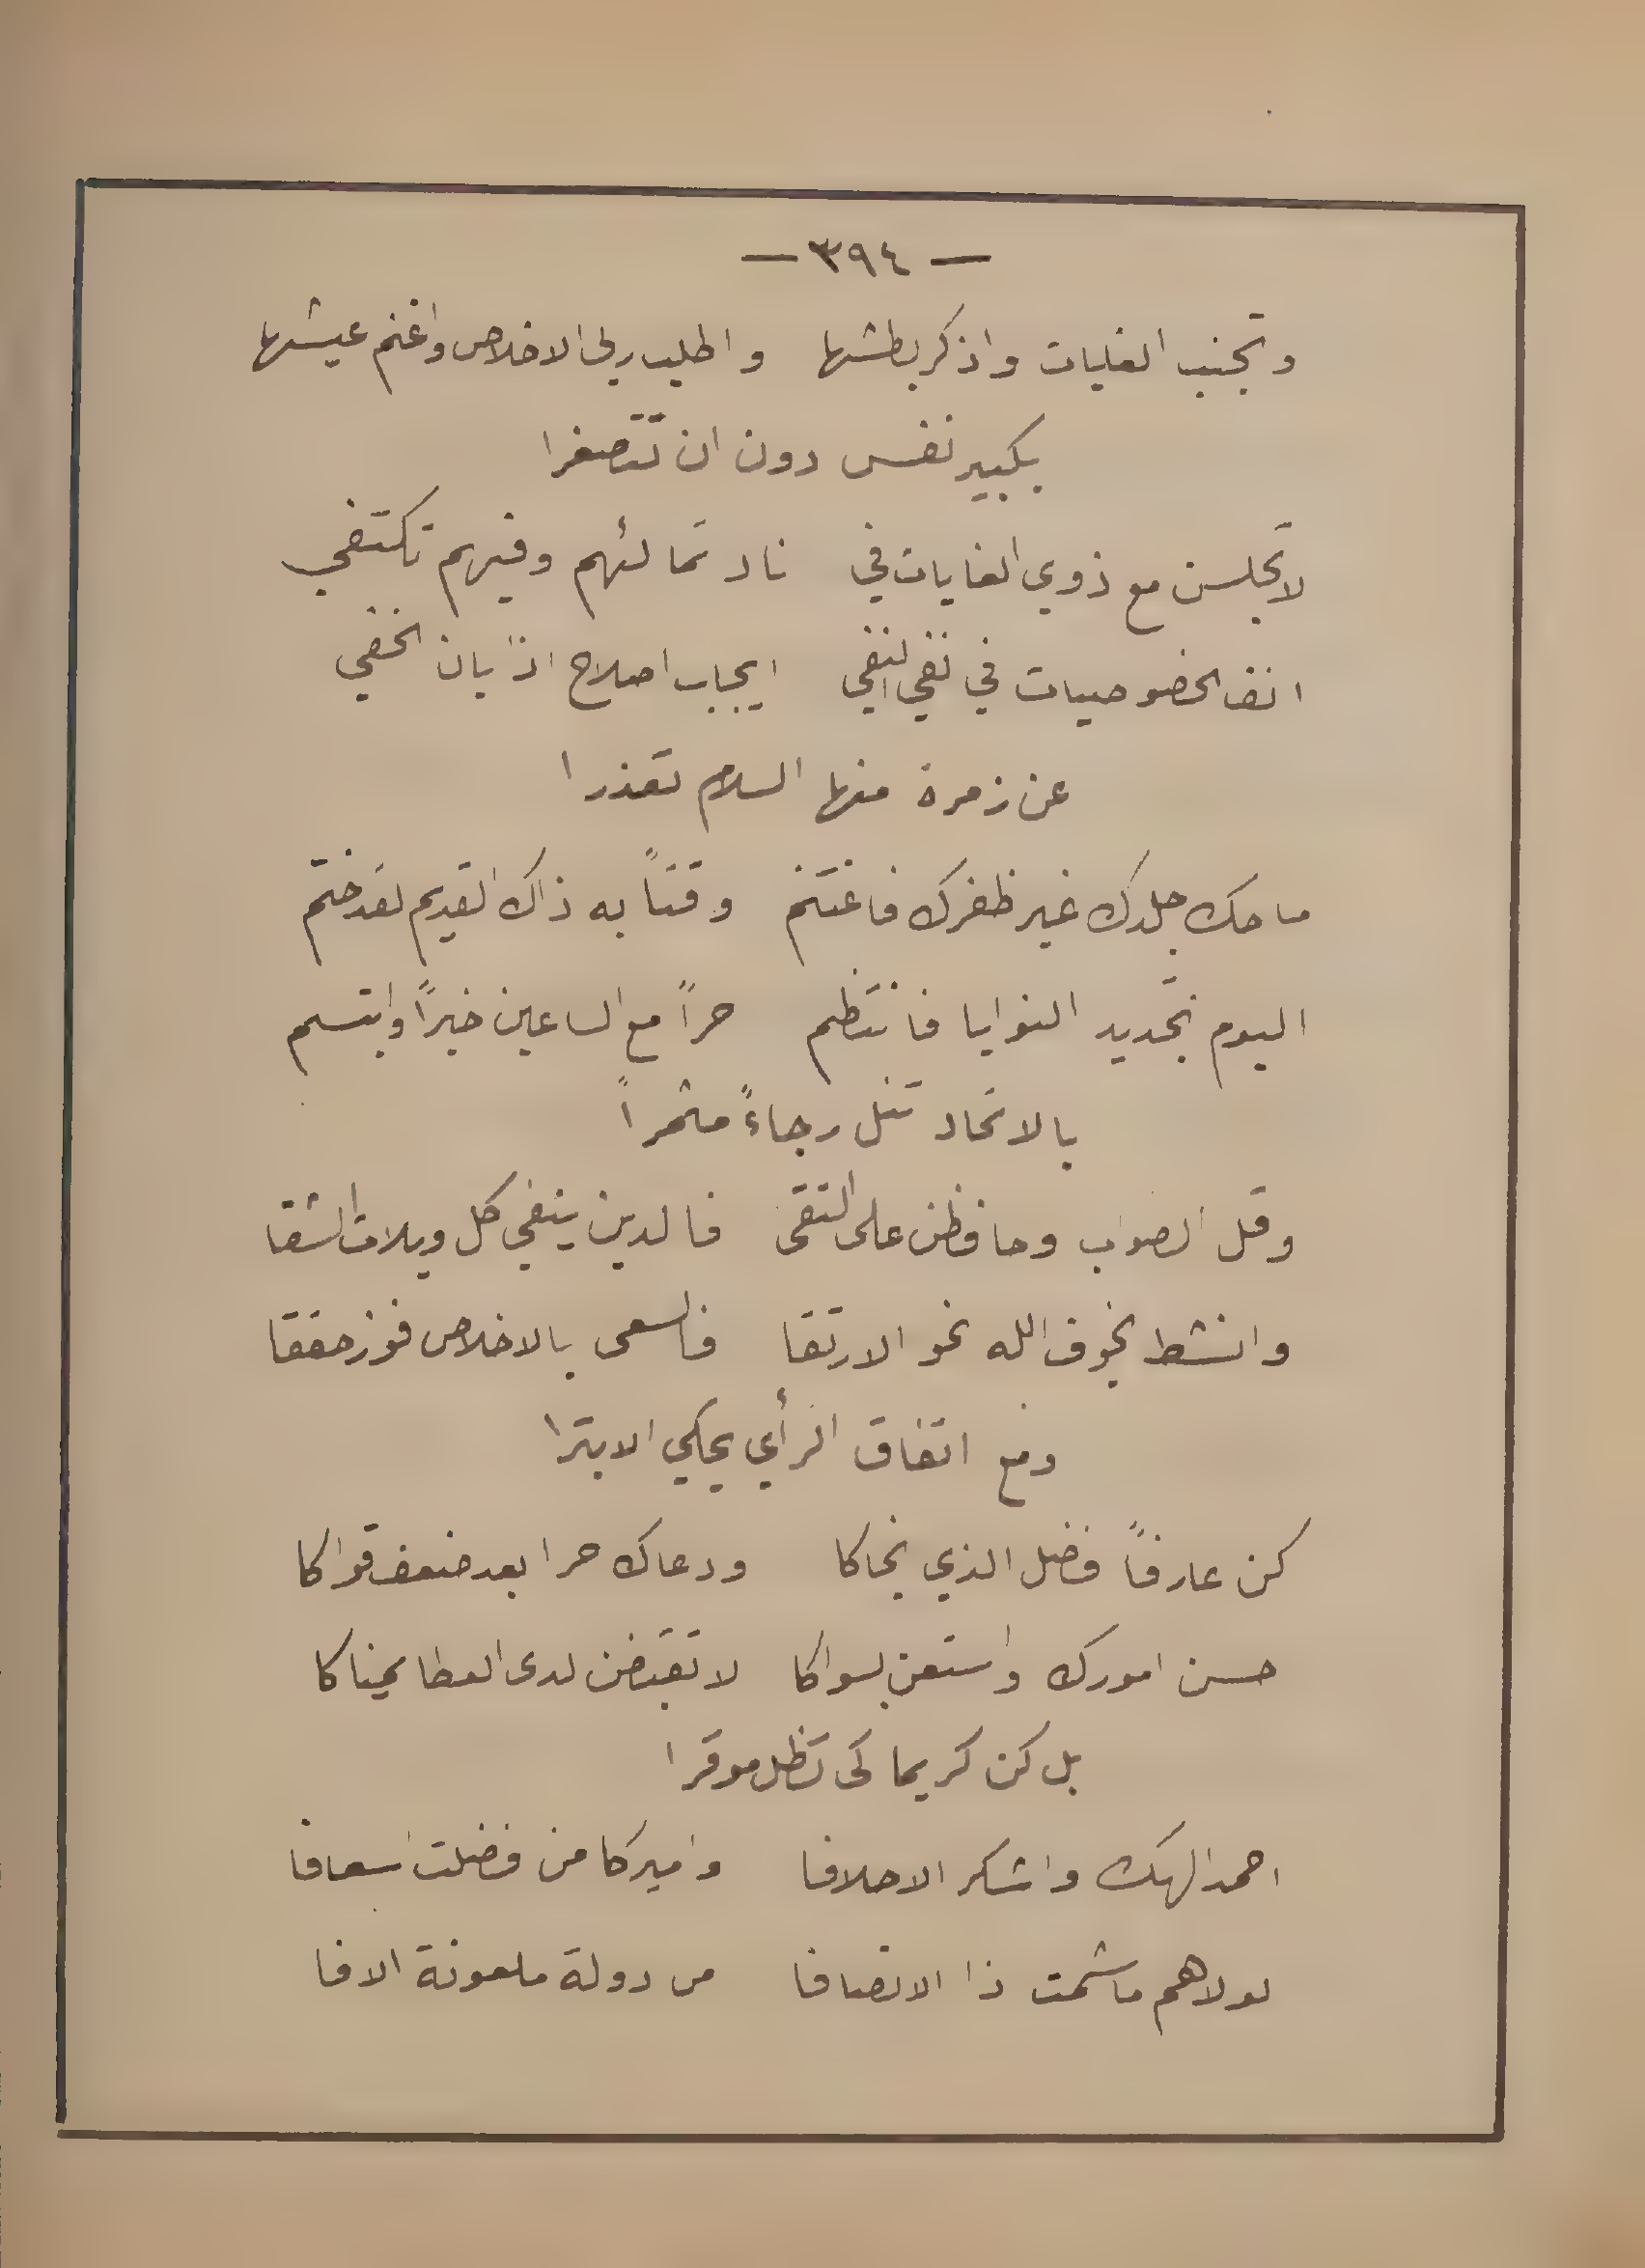 — ٣٩٤ —
وتجنب الغليات واذكر بطشها واطلب ربى الاخلاص واغنم عيشها
بكبير نفس دون ان تتصغرا
لا تجلسن مع ذوي الغايات في ناد تمالئهم وفيهم تكتفي
انف الخصوصيات في نفي النفي ايجاب اصلاح اذا بان الخفي
عن زمرة منها السلام تعذرا
ما حك جلدك غير ظفرك فاغتنم وقتاً به ذاك القديم لقد ختم
اليوم تجديد النوايا فانتظم حراً مع الساعين خيراً وابتسم
بالاتحاد تنل رجاءً مثمراً
وقل الصواب وحافظن على التقى فالدين ينفي كل ويلات الشقا
وانشط بخوف الله نحو الارتقا فالسعى بالاخلاص فوز حققا
ومع اتفاق الرأي يحكي الابترا
كن عارفاً فضل الذي نجاكا ودعاك حرا بعد ضعف قواكا
حسن امورك واستعن بسواكا لا تقبضن لدى العطا يمناكا
بل كن كريما كى تظل موقرا
احمد الهك واشكر الاحلافا واميركا من فضلت اسعافا
لولاهم ما شمت ذا الانصافا من دولة ملعونة الافا